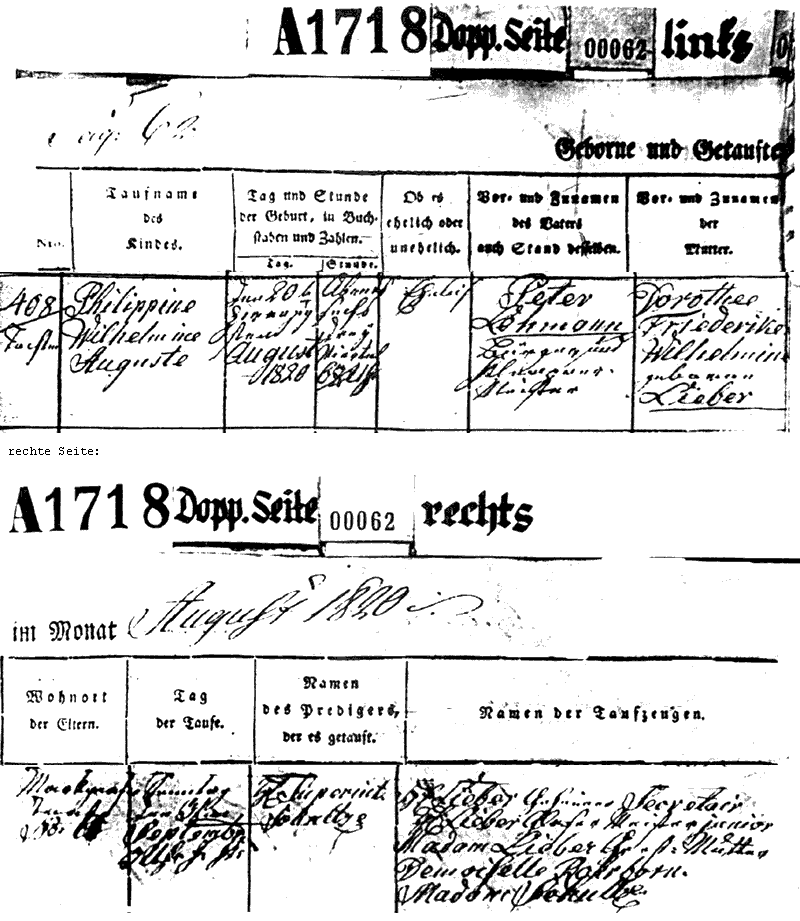 A1718 Dopp. Seite 00062 links
Pag. 62
Geborne und Getaufte
Nro.
Taufname
des
Kindes.
Tag und Stunde
der Geburt, in Buch-
staben und Zahlen.
Tag. Stunde.
Ob es
ehelich oder
unehelich.
Vor- und Zunamen
des Vaters
auch Stand desselben.
Vor- und Zunamen
der
Mutter.
408
Philippine
Wilhelmine
Auguste
August
1820
sechs
drey
Viertel
Ehelich
Peter
Lohmann
Bürger und
Meister
Dorothee
Friederike
Wilhelmine
geborene
Lieber
rechte Seite:
A1718 Dopp. Seite 00062 rechts
im Monat August 1820
Wohnort
der Eltern.
Tag
der Taufe.
Namen
des Predigers,
der es getauft.
Namen der Taufzeugen.
Sonntag
September
Superint.
Schultze
Lieber Geheimer Secretair
Lieber Meister junior
Madam Lieber Groß-Mutter
Demoiselle Rohrborn.
Madame Schultze